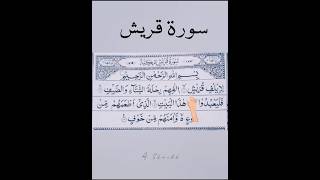 سورة قريش
بِسْمِ اللّٰهِ الرَّحْمٰنِ الرَّحِيْمِ
لِاِيْلٰفِ قُرَيْشٍ اٖلٰفِهِمْ رِحْلَةَ الشِّتَآءِ وَالصَّيْفِ
فَلْيَعْبُدُوْا هٰذَا الْبَيْتِ الَّذِيْٓ اَطْعَمَهُمْ مِّنْ
وَّاٰمَنَهُمْ مِّنْ خَوْفٍ